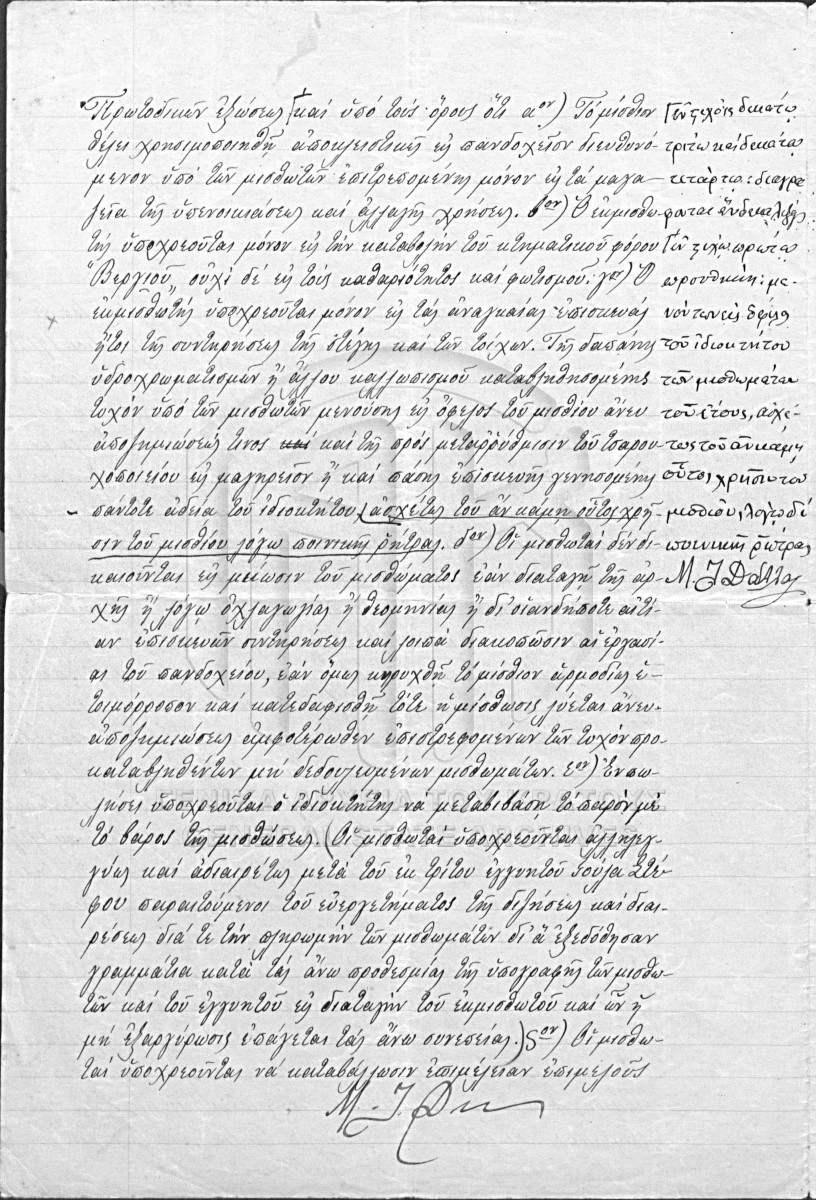 Πρωτοδικῶν ἐξώσεως καὶ ὑπό τούς ὅρους ὅτι αον) Τό μίσθιον
θέλει χρησιμοποιηθῆ ἀποκλειστικῶς εἰς πανδοχεῖον διευθυνό-
μενον ὑπό τῶν μισθωτῶν ἐπιτρεπομένης μόνον εἰς τά μαγα-
ζεῖα τῆς ὑπενοικιάσεως καί ἀλλαγῆς χρήσεως. βον) Ὁ ἐκμισθω-
τής ὑποχρεοῦται μόνον εἰς τήν καταβολήν τοῦ κτηματικοῦ φόρου
"Βεργιοῦ„ οὐχί δέ εἰς τούς καθαριότητος καί φωτισμοῦ. γον) Ὁ
ἐκμισθωτής ὑποχρεοῦται μόνον εἰς τάς ἀναγκαίας ἐπισκευάς
ἤτοι τῆς συντηρήσεως τῆς στέγης καί τῶν τοίχων. Τῆς δαπάνης
ὑδροχρωματισμῶν ἤ ἄλλου καλλωπισμοῦ καταβληθησομένης
τυχόν ὑπό τῶν μισθωτῶν μενούσης εἰς ὄφελος τοῦ μισθίου ἄνευ
ἀποζημιώσεώς τινος καί καί τῆς πρός μεταρρύθμισιν τοῦ τσαρου-
χοποιείου εἰς μαγηρεῖον ἤ καί πάσης ἐπισκευῆς γενησομένης
πάντοτε ἀδεία τοῦ ἰδιοκτήτου, ἀσχέτως τοῦ ἄν κάμη οὗτος χρῆ-
σιν τοῦ μισθίου λόγω ποινικῆς ρήτρας. δον) Οἱ μισθωταί δέν δι-
καιοῦνται εἰς μείωσιν τοῦ μισθώματος ἐάν διαταγῆ τῆς ἀρ-
χῆς ἤ λόγω ὀχλαγωγίας ἤ θεομηνίας ἤ δι' οἱανδήποτε αἰτί-
αν ἐπισκευῶν συντηρήσεως καί λοιπά διακοπῶσιν αἱ ἐργασί-
αι τοῦ πανδοχείου, ἐάν ὅμως κηρυχθῆ τό μίσθιον ἁρμοδίως ἑ-
τοιμόρροπον καί κατεδαφισθῆ τότε ἡ μίσθωσις λύεται ἄνευ
ἀποζημιώσεως ἀμφοτέρωθεν ἐπιστρεφομένων τῶν τυχόν προ-
καταβληθέντων μή δεδουλευμένων μισθωμάτων. εον) Ἐν πω-
λήσει ὑποχρεοῦται ὁ ἰδιοκτήτης νά μεταβιβάση τό παρόν μέ
τό βάρος τῆς μισθώσεως. (Οἱ μισθωταί ὑποχρεοῦνται ἀλληλεγ-
γύως καί ἀδιαιρέτως μετά τοῦ ἐκ τρίτου ἐγγυητοῦ Σούλα Στέ-
φου παραιτούμενοι τοῦ εὐεργετήματος τῆς διζήσεως καί διαι-
ρέσεως διά τε τήν πληρωμήν τῶν μισθωμάτων δι' ἅ ἐξεδόθησαν
γραμμάτια κατά τάς ἄνω προθεσμίας τῆς ὑπογραφῆς τῶν μισθω-
τῶν καί τοῦ ἐγγυητοῦ εἰς διαταγήν τοῦ ἐκμισθωτοῦ καί ὧν ἡ
μή ἐξαργύρωσις ἐπάγεται τάς ἄνω συνεπείας.) ςον) Οἱ μισθω-
ταί ὑποχρεοῦνται νά καταβάλλωσιν ἐπιμέλειαν ἐπιμελοῦς
Μ. Ι. Δ
Ἐν στίχοις δεκάτω
τρίτω καί δεκάτω
τετάρτω: διαγρά-
φονται ἕνδεκα λέξεις
Ἐν στίχω πρώτω
προσθήκη: με-
νόντων εἰς ὄφελος
τοῦ ἰδιοκτήτου
τῶν μισθωμάτων
τοῦ ἔτους, ἀσχέ-
τως τοῦ ἄν κάμη
οὗτος χρῆσιν τοῦ
μισθίου, λόγω δέ
ποινικῆς ρήτρας
Μ. Ι. Δάλλας
ΓΕΝΙΚΑ ΑΡΧΕΙΑ ΤΟΥ ΚΡΑΤΟΥΣ
GENERAL STATE ARCHIVES